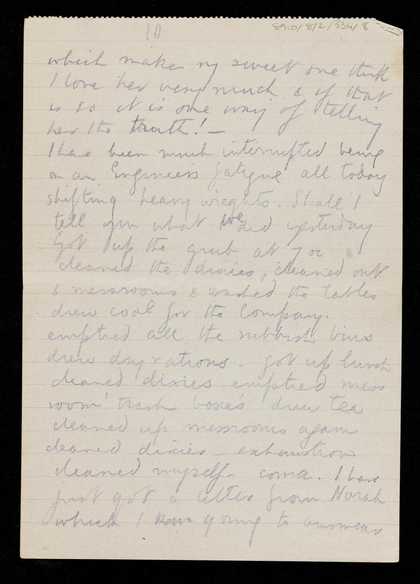 10
8910/8/2/334/8
which make my sweet one think
I love her very much & if that
is so it is one way of telling
her the truth! —
I have been much interrupted being
on an Engineers fatigue all today
shifting heavy wieghts. Shall I
tell you what we did yesterday
Got up the grub at 7.0
cleaned the dixies, cleaned out
& messrooms & washed the tables
drew coal for the Company.
emptied all the rubbish bins
drew dry rations. Got up lunch
cleaned dixies emptied mess
room trash boxes drew tea
cleaned up messrooms again
cleaned dixies – exhaustion
cleaned myself coma. I have
just got a letter from Norah
which I am going to answer